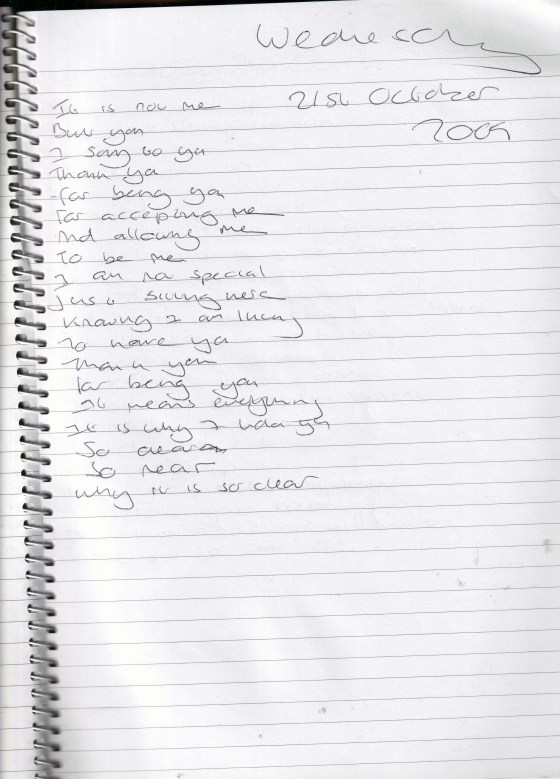 Wednesday
21st October
2009
It is not me
But you
I say to you
Thank you
for being you
For accepting me
And allowing me
To be me
I am no special
Just sitting here
Knowing I am lucky
To have you
Thank you
For being you
It means everything
It is why I hold you
So dear
So near
Why it is so clear